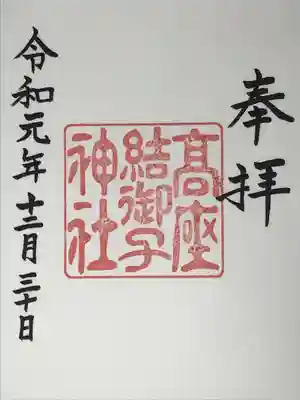 奉拝
髙座
結御子
神社
令和元年十二月三十日